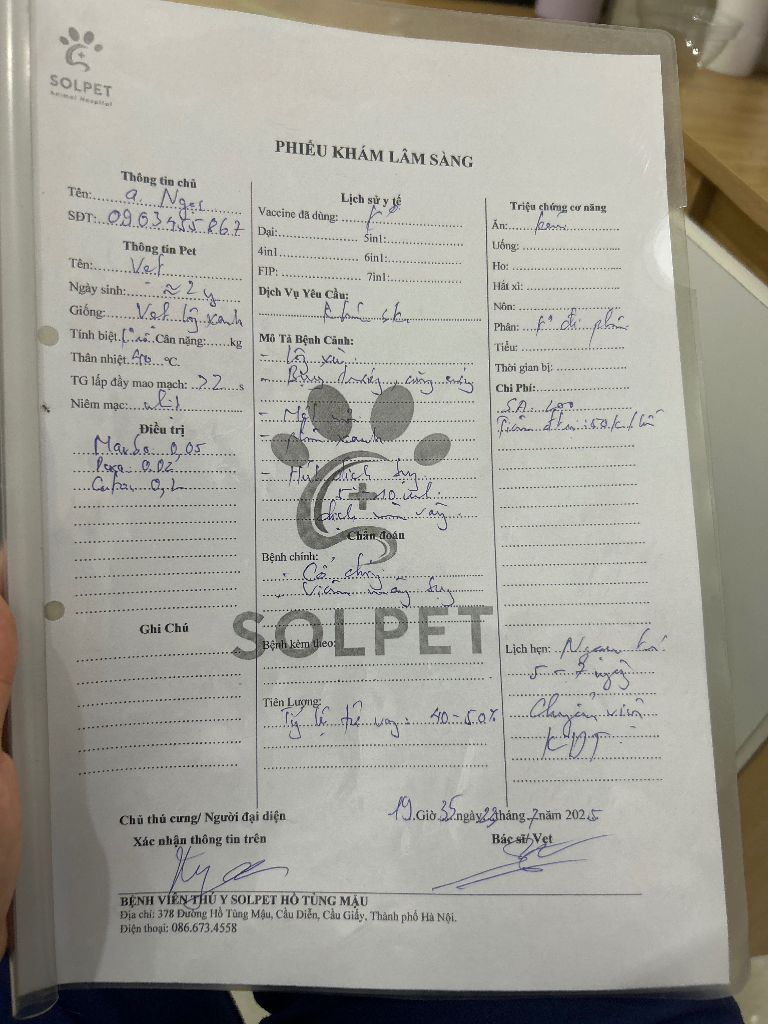 SOLPET
Animal Hospital
PHIẾU KHÁM LÂM SÀNG
Thông tin chủ
Tên: a. Ngọc
SĐT: 0903455867
Thông tin Pet
Tên: Vẹt
Ngày sinh: ≈ 2 y
Giống: Vẹt lông xanh
Tính biệt: Cân nặng: kg
Thân nhiệt: 40 °C.
TG lấp đầy mao mạch: >2 s
Niêm mạc:
Điều trị
Marbo 0,05
0.02
0,2
Ghi Chú
Lịch sử y tế
Vaccine đã dùng:
Dại: 5in1:
4in1 6in1:
FIP: 7in1:
Dịch Vụ Yêu Cầu:
Khám sk
Mô Tả Bệnh Cảnh:
- Lông xù
- Bụng
- Mệt
- phân xanh
- Hút dịch bụng
5 - 10 ml.
dịch màu vàng
Chẩn đoán
Bệnh chính:
- Cổ chướng
- Viêm màng bụng
SOLPET
Bệnh kèm theo:
Tiên Lượng:
Tỷ lệ tử vong: 40-50%
Triệu chứng cơ năng
Ăn: kém
Uống:
Ho:
Hắt xì:
Nôn:
Phân: đi phân
Tiểu:
Thời gian bị:
Chi Phí:
SA 200
Tiêm đtrị: 50k/
Lịch hẹn: Ngoại trú
5 - 7 ngày
Chuyển viện
KDT
Chủ thú cưng/ Người đại diện
Xác nhận thông tin trên
19 Giờ 35 ngày 23 tháng 7 năm 2025
Bác sĩ Vẹt
BỆNH VIỆN THÚ Y SOLPET HỒ TÙNG MẬU
Địa chỉ: 378 Đường Hồ Tùng Mậu, Cầu Diễn, Cầu Giấy, Thành phố Hà Nội.
Điện thoại: 086.673.4558